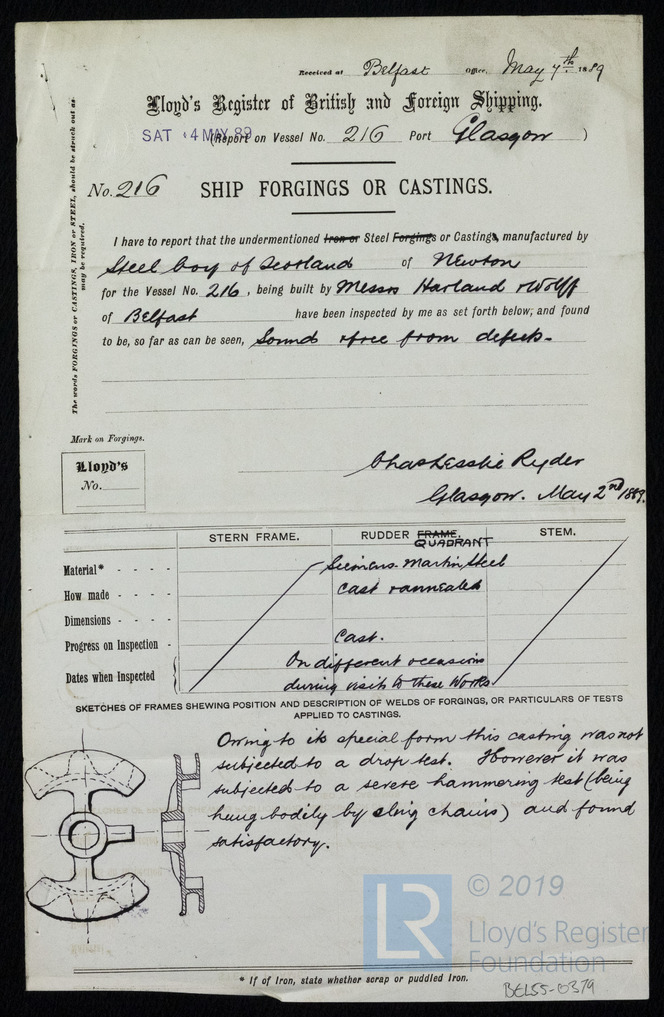 Received at Belfast Office, May 7th 1889
Lloyd's Register of British and Foreign Shipping.
SAT 4 MAY 89
(Report on Vessel No. 216 Port Glasgow )
No. 216 SHIP FORGINGS OR CASTINGS.
The words FORGINGS or CASTINGS, IRON or STEEL, should be struck out as
may be required.
I have to report that the undermentioned Iron or Steel Forgings or Castings, manufactured by
Steel Coy of Scotland of Newton
for the Vessel No. 216, being built by Messrs Harland & Wolff
of Belfast have been inspected by me as set forth below; and found
to be, so far as can be seen, Sound & free from defects.
Mark on Forgings.
Lloyd's
No.
Chas Lesslie Ryder
Glasgow. May 2nd 1889.
STERN FRAME. RUDDER FRAME. STEM.
QUADRANT
Material* - - - - Siemens-Martin Steel
How made - - - - Cast & annealed
Dimensions - - - -
Progress on Inspection - Cast.
Dates when Inspected On different occasions
during visits to these Works.
SKETCHES OF FRAMES SHEWING POSITION AND DESCRIPTION OF WELDS OF FORGINGS, OR PARTICULARS OF TESTS
APPLIED TO CASTINGS.
Owing to its special form this casting was not
subjected to a drop test. However it was
subjected to a severe hammering test (being
hung bodily by sling chains) and found
satisfactory.
LR
© 2019
Lloyd's Register
Foundation
* If of Iron, state whether scrap or puddled Iron.
BEL55-0379